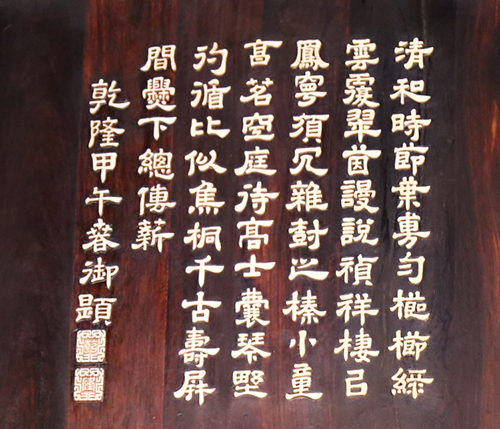 清和時節葉旉勻櫛
雲覆翠茵謾說禎祥棲已
鳳寧須冗雜對之榛小童
茗空庭待高士囊琴野
彴循比似焦桐千古壽屏
間爨下總傳薪
乾隆甲午春御題